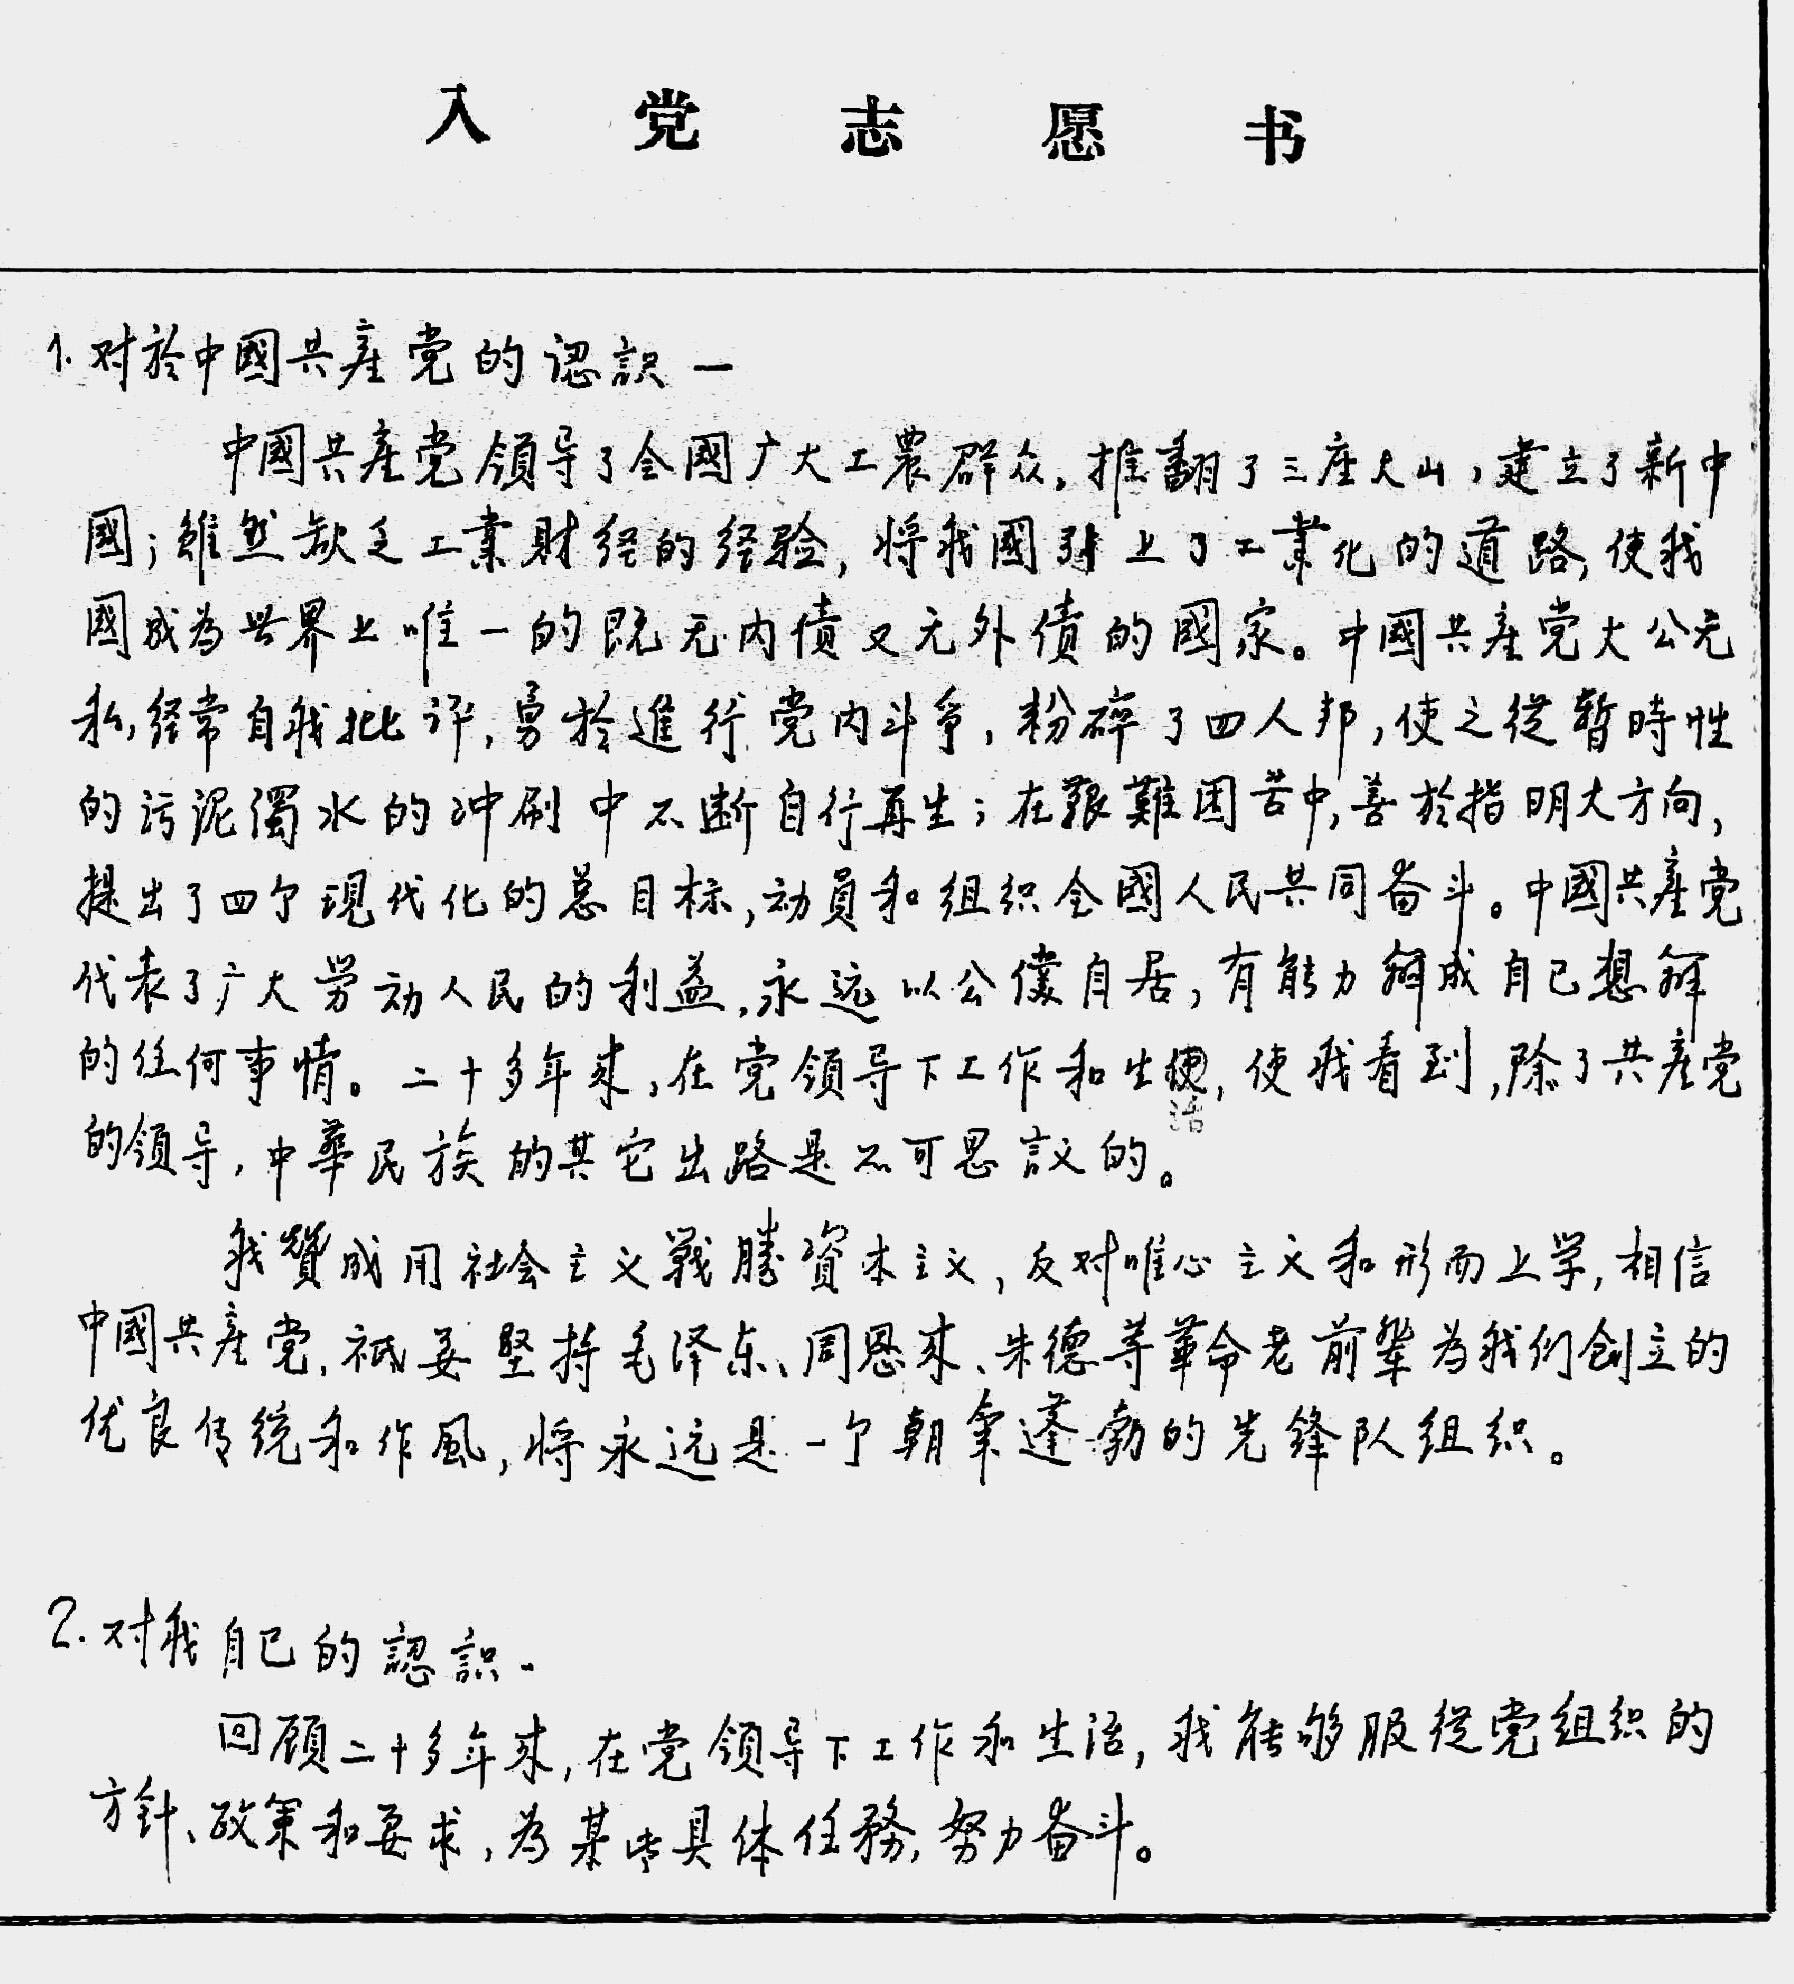 入党志愿书
1. 对於中國共産党的認識 —
中國共産党領导了全國广大工農群众,推翻了三座大山,建立了新中
國;雖然缺乏工業財经的经验,将我國引上了工業化的道路,使我
國成为世界上唯一的既无内債又无外債的國家。中國共産党大公无
私,经常自我批评,勇於進行党内斗争,粉碎了四人邦,使之從暫時性
的污泥濁水的冲刷中不断自行再生;在艱難困苦中,善於指明大方向,
提出了四个現代化的总目标,动員和组织全國人民共同奋斗。中國共産党
代表了广大劳动人民的利益,永远以公僕自居,有能力辦成自己想辦
的任何事情。二十多年来,在党領导下工作和生活,使我看到,除了共産党
的領导,中華民族的其它出路是不可思議的。
我贊成用社会主义戰勝資本主义,反对唯心主义和形而上学,相信
中國共産党,祇要坚持毛泽东、周恩来、朱德等革命老前輩为我们創立的
优良传统和作風,将永远是一个朝气蓬勃的先鋒队组织。
2. 对我自己的認識 -
回顾二十多年来,在党領导下工作和生活,我能够服從党组织的
方針、政策和要求,为某些具体任務,努力奋斗。